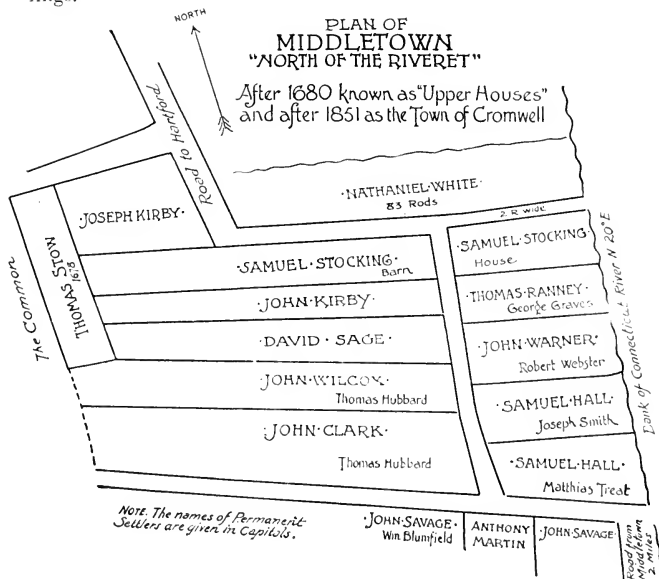 NORTH
PLAN OF
MIDDLETOWN
"NORTH OF THE RIVERET"
After 1680 known as "Upper Houses"
and after 1851 as the Town of Cromwell
Road to Hartford
·NATHANIEL·WHITE·
83 Rods
2 R wide
·JOSEPH KIRBY·
THOMAS STOW
1678
The Common
·SAMUEL·STOCKING·
Barn
·JOHN·KIRBY·
·DAVID·SAGE·
·JOHN·WILCOX·
Thomas Hubbard
·JOHN·CLARK·
Thomas Hubbard
·SAMUEL·STOCKING·
House
·THOMAS·RANNEY·
George Graves
·JOHN·WARNER·
Robert Webster
·SAMUEL·HALL·
Joseph Smith
·SAMUEL·HALL·
Matthias Treat
Bank of Connecticut River N 20°E
NOTE. The names of Permanent
Settlers are given in Capitols.
·JOHN·SAVAGE·
Wm Blumfield
ANTHONY
MARTIN
·JOHN·SAVAGE·
Road from
Middletown
2 Miles